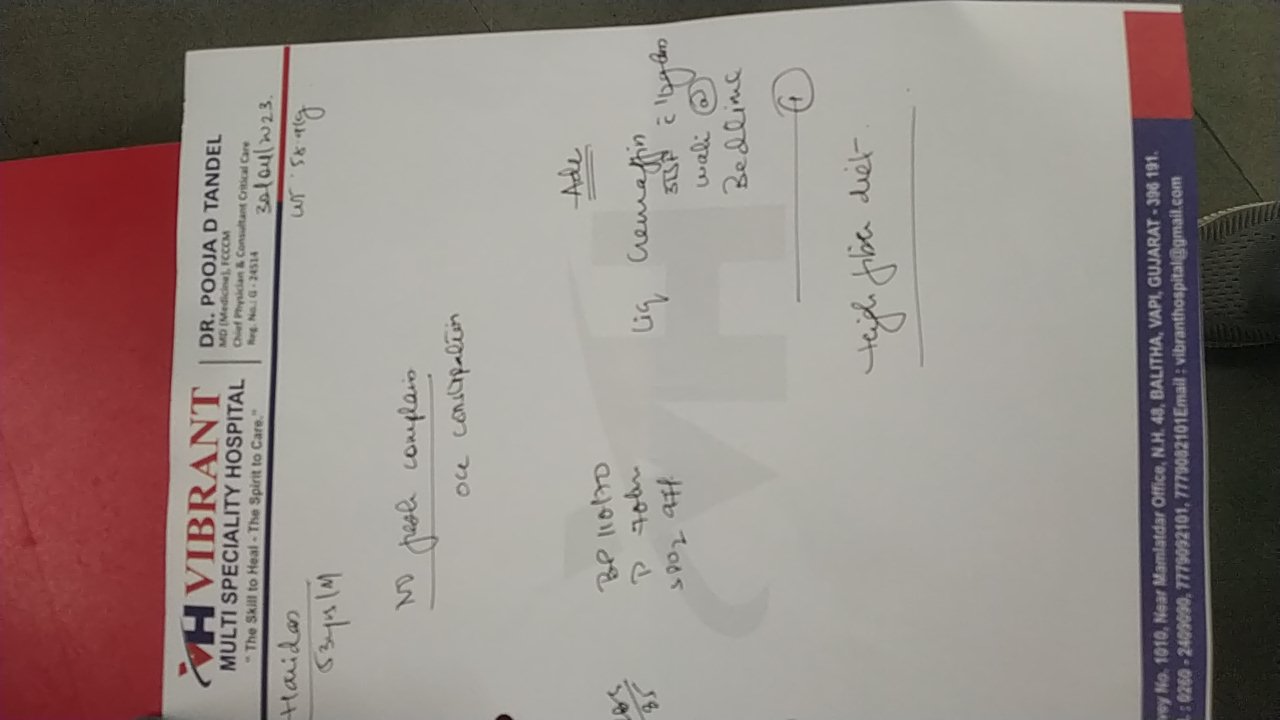 VH VIBRANT
MULTI SPECIALITY HOSPITAL
" The Skill to Heal - The Spirit to Care."
DR. POOJA D TANDEL
MD (Medicine), FCCCM
Chief Physician & Consultant Critical Care
Reg. No.: G - 24514
30/04/2023.
Haridas
53yrs/M
No fresh complain
occ constipation
85
BP 110/70
P 70bm
SPO2
Adv
Liq Cremaffin
wali @
Bedtime
High fiber diet
vey No. 1010, Near Mamlatdar Office, N.H. 48, BALITHA, VAPI, GUJARAT - 396 191.
: 0260 - 2409090, 7779092101, 7779082101 Email : vibranthospital@gmail.com